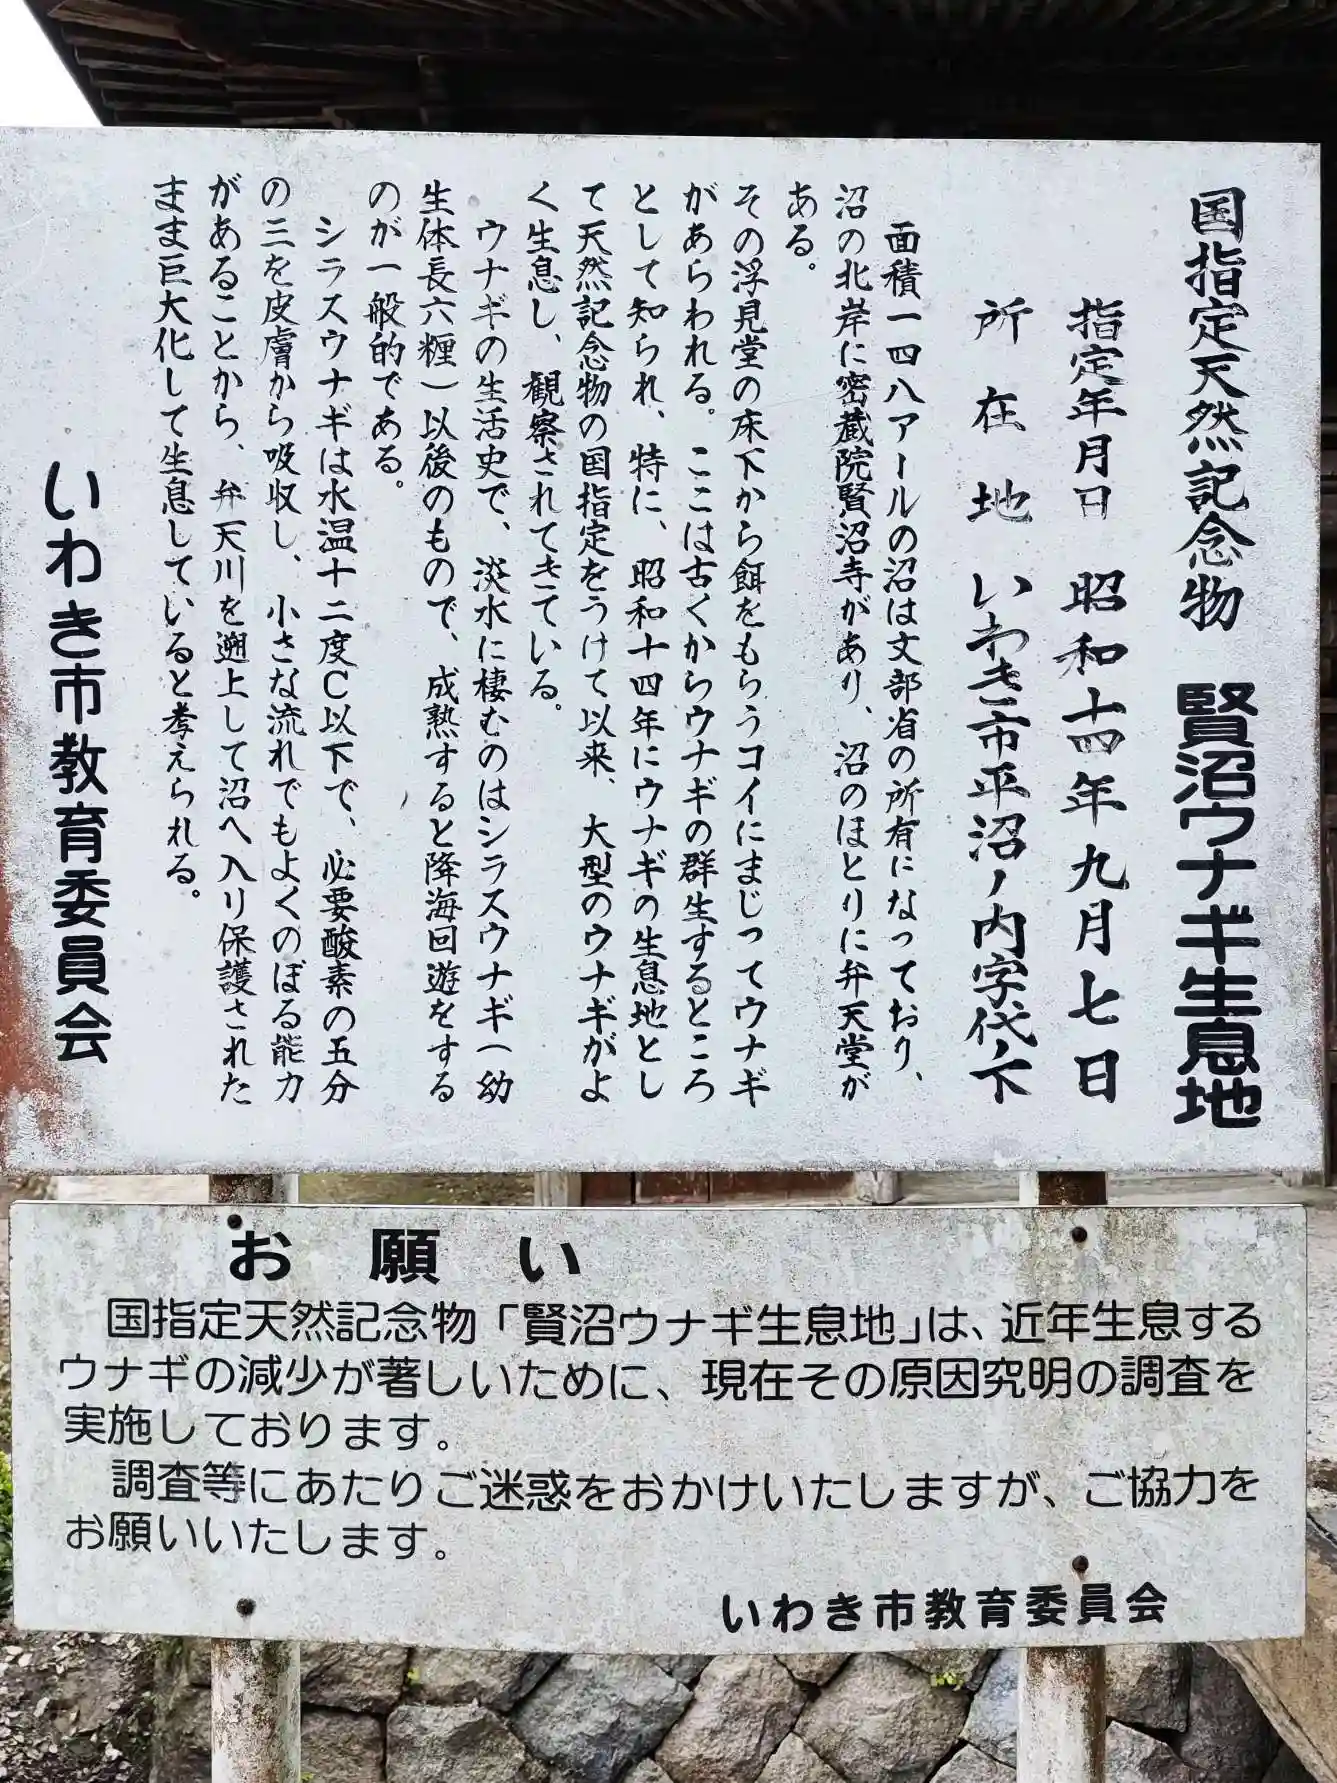 国指定天然記念物　賢沼ウナギ生息地
指定年月日　昭和十四年九月七日
所在地　いわき市平沼ノ内字代ノ下
面積一四八アールの沼は文部省の所有になっており、
沼の北岸に密蔵院賢沼寺があり、沼のほとりに弁天堂が
ある。
その浮見堂の床下から餌をもらうコイにまじってウナギ
があらわれる。ここは古くからウナギの群生するところ
として知られ、特に、昭和十四年にウナギの生息地とし
て天然記念物の国指定をうけて以来、大型のウナギがよ
く生息し、観察されてきている。
ウナギの生活史で、淡水に棲むのはシラスウナギ（幼
生体長六糎）以後のもので、成熟すると降海回遊をする
のが一般的である。
シラスウナギは水温十二度C以下で、必要酸素の五分
の三を皮膚から吸収し、小さな流れでもよくのぼる能力
があることから、弁天川を遡上して沼へ入り保護された
まま巨大化して生息していると考えられる。
いわき市教育委員会
お願い
国指定天然記念物「賢沼ウナギ生息地」は、近年生息する
ウナギの減少が著しいために、現在その原因究明の調査を
実施しております。
調査等にあたりご迷惑をおかけいたしますが、ご協力を
お願いいたします。
いわき市教育委員会